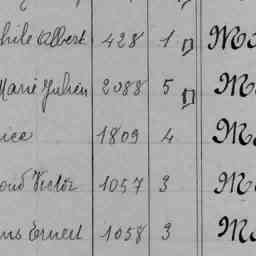 phile Albert 428 1 M
Marie Julien 2088 5 M
1809 4 M
Victor 1057 3 M
Ernest 1058 3 M